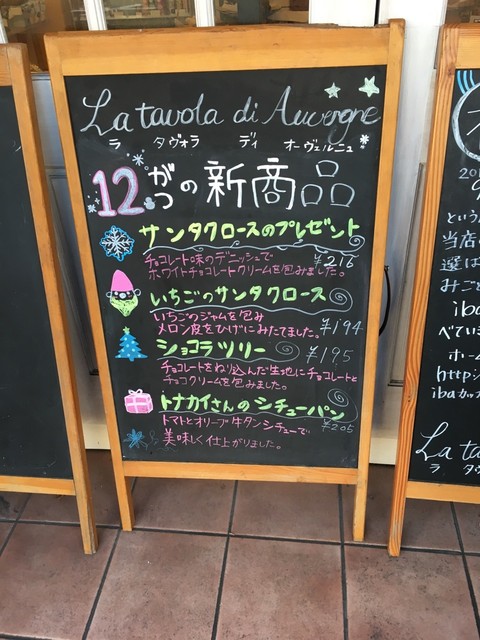 La tavola di Auvergne
ラ タヴォラ ディ オーヴェルニュ
12がつの新商品
サンタクロースのプレゼント
チョコレート味のデニッシュで ¥216
ホワイトチョコレートクリームを包みました。
いちごのサンタクロース
いちごのジャムを包み
メロン皮をひげにみたてました。 ¥194
ショコラツリー ¥195
チョコレートをねり込んだ生地にチョコレートと
チョコクリームを包みました。
トナカイさんのシチューパン
トマトとオリーブ牛タンシチューで ¥205
美味しく仕上がりました。
という
当店
選ば
みご
iba
べてい
ホーム
http:/
ibaカッ
La ta
ラ タヴ